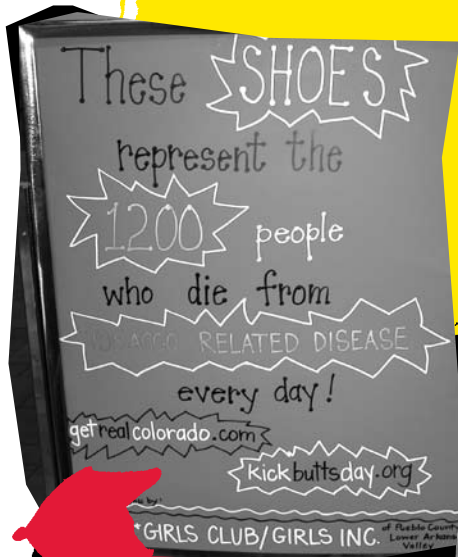 These SHOES
represent the
1200 people
who die from
TOBACCO RELATED DISEASE
every day!
getrealcolorado.com
kickbuttsday.org
by:
*GIRLS CLUB/GIRLS INC. of Pueblo County
Lower Arkansas
Valley